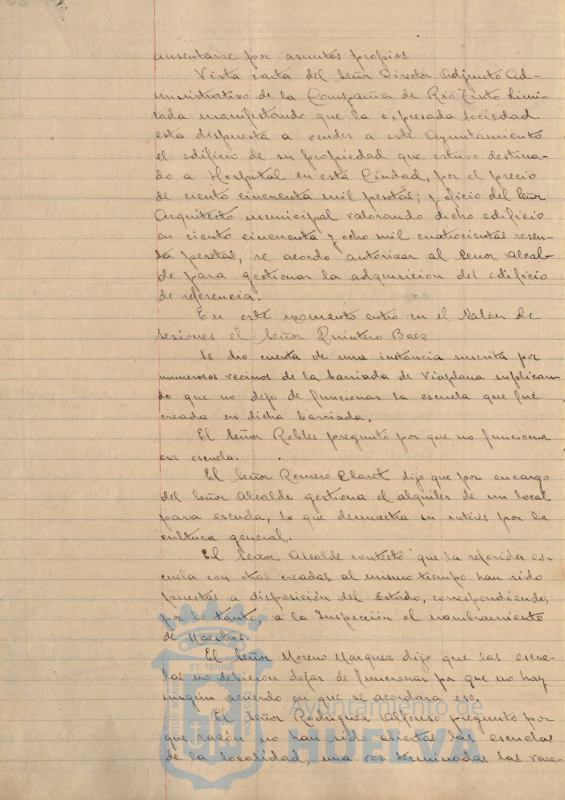 ausentarse por asuntos propios.
Vista carta del Señor Director Adjunto Ad-
ministrativo de la Compañia de Rio Tinto Limi-
tada manifestando que la expresada sociedad
esta dispuesta a vender a este Ayuntamiento
el edificio de su propiedad que estuvo destina-
do a Hospital en esta Ciudad, por el precio
de ciento cincuenta mil pesetas; y oficio del Señor
Arquitecto municipal valorando dicho edificio
en ciento cincuenta y ocho mil cuatrocientas sesen-
ta pesetas, se acordo autorizar al Señor Alcal-
de para gestionar la adquisicion del edificio
de referencia.
En este momento entro en el Salón de
sesiones el Señor Quintero Baez
Se dio cuenta de una instancia suscrita por
numerosos vecinos de la barriada de Viaplana suplican-
do que no deje de funcionar la escuela que fué
creada en dicha barriada.
El Señor Robles preguntó por que no funciona
esa escuela.
El Señor Romero Claret dijo que por encargo
del Señor Alcalde gestiona el alquiler de un local
para escuela, lo que demuestra su interés por la
cultura general.
El Señor Alcalde contestó que la referida es-
cuela con otras creadas al mismo tiempo han sido
puestas a disposición del Estado, correspondiendo,
por lo tanto, a la Inspección el nombramiento
de Maestros.
El Señor Moreno Marquez dijo que las escue-
las no debieron dejar de funcionar por que no hay
ningún acuerdo en que se acordara eso.
El Señor Rodriguez Alfonso preguntó por
que razón no han sido abiertas las escuelas
de la localidad, una vez terminadas las vaca-
Ayuntamiento de
HUELVA